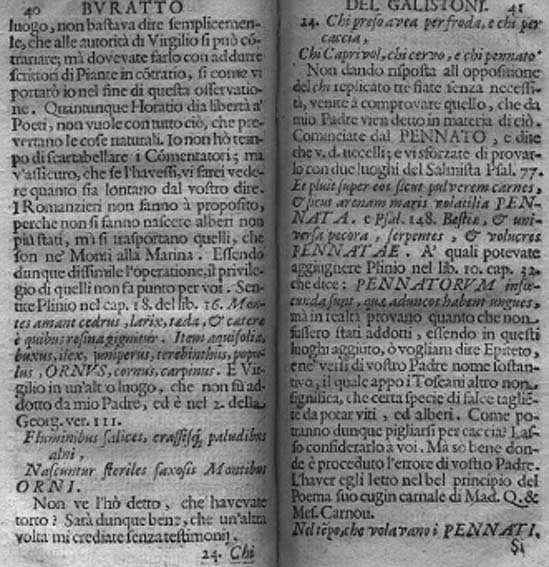 40 BVRATTO
luogo, non bastava dire semplicemen-
te, che alle autorità di Virgilio si può cõ-
trariare; mà dovevate farlo con addurre
scrittori di Piante in cõtrario, sì come vi
portarò io nel fine di questa osservatio-
ne. Quantunque Horatio dia libertà a'
Poeti, non vuole con tutto ciò, che pre-
vertano le cose naturali. Io non hò tem-
po di scartabellare i Cõmentatori; ma
v'assicuro, che se l'havessi, vi farei vede-
re quanto sia lontano dal vostro dire.
I Romanzieri non fanno à proposito,
perche non si fanno nascere alberi non
più stati, mà si trasportano quelli, che
son ne' Monti alla Marina. Essendo
dunque dissimile l'operatione, il privile-
gio di quelli non fa punto per voi. Sen-
tite Plinio nel cap. 18. del lib. 16. Mon-
tes amant cedrus, larix, tæda, & cæteræ
è quibus resina gignitur. Item aquifolia,
buxus, ilex, juniperus, terebinthus, popu-
lus, ORNVS, cornus, carpinus. E Vir-
gilio in un'altro luogo, che non fù ad-
dotto da mio Padre, ed è nel 2. della
Georg. ver. 111.
Fluminibus salices, crassisq; paludibus
alni,
Nascuntur steriles saxosis Montibus
ORNI.
Non ve l'hò detto, che havevate
torto? Sarà dunque bene, che un'altra
volta mi crediate senza testimonj.
24. Chi
DEL GALISTONI. 41
24. Chi preso avea per froda, e chi per
caccia,
Chi Caprivol, chi cervo, e chi pennato.
Non dando risposta all opposizione
del chi replicato tre fiate senza necessi-
tà, venite à comprovare quello, che da
mio Padre vien detto in materia di ciò.
Cominciate dal PENNATO, e dite
che v. d. uccelli; e vi sforzate di provar-
lo con due luoghi del Salmista Psal. 77.
Et pluit super eos sicut pulverem carnes,
& sicut arenam maris volatilia PEN-
NATA. e Psal. 148. Bestiæ, & uni-
versa pecora, serpentes, & volucres
PENNATAE. A' quali potevate
aggiugnere Plinio nel lib. 10. cap. 32.
che dice: PENNATORVM infœ-
cunda sunt, quæ aduncos habent ungues,
mà in realtà provano quanto che non
fussero stati addotti, essendo in questi
luoghi aggiuto, ò vogliam dire Epiteto,
e ne' versi di vostro Padre nome sostan-
tivo, il quale appo i Toscani altro non
significa, che certa specie di falce tagliẽ-
te da potar viti, ed alberi. Come po-
tranno dunque pigliarsi per caccia? Las-
so considerarlo a voi. Ma so bene don-
de è proceduto l'errore di vostro Padre.
L'haver egli letto nel bel principio del
Poema suo cugin carnale di Mad. Q. &
Mes. Carnou.
Nel tẽpo, che volavano i PENNATI.
Si